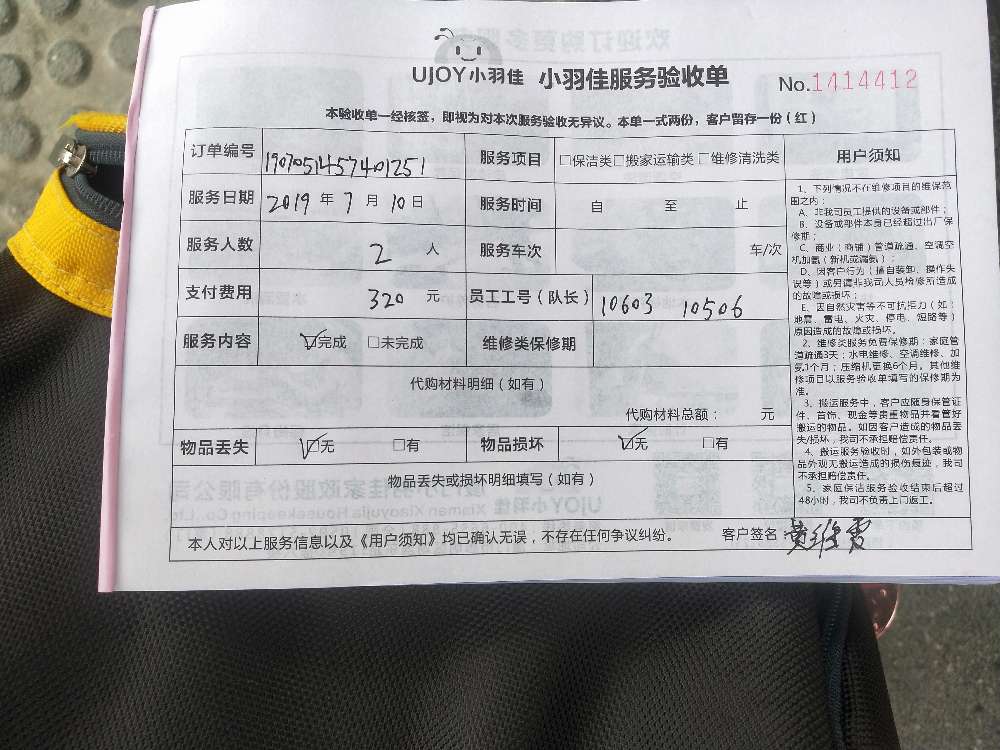 UJOY小羽佳 小羽佳服务验收单 No.1414412
本验收单一经核签，即视为对本次服务验收无异议。本单一式两份，客户留存一份（红）
订单编号 1907051457401251 服务项目 □保洁类□搬家运输类□维修清洗类
服务日期 2019年7月10日 服务时间 自 至 止
服务人数 2人 服务车次 车/次
支付费用 320元 员工工号（队长） 10603 10506
服务内容 ☑完成 □未完成 维修类保修期
代购材料明细（如有）
代购材料总额： 元
物品丢失 ☑无 □有 物品损坏 ☑无 □有
物品丢失或损坏明细填写（如有）
本人对以上服务信息以及《用户须知》均已确认无误，不存在任何争议纠纷。 客户签名：黄维雪
用户须知
1、下列情况不在维修项目的维保范
围之内：
A、非我司员工提供的设备或部件；
B、设备或部件本身已经超过出厂保
修期；
C、商业（商铺）管道疏通、空调空
机加氨（新机或漏氨）；
D、因客户行为（擅自装卸、操作失
误等）或另请非我司人员维修所造成
的故障或损坏；
E、因自然灾害等不可抗拒力（如：
地震、雷电、火灾、停电、短路等）
原因造成的故障或损坏。
2、维修类服务免费保修期：家庭管
道疏通3天；水电维修、空调维修、加
氨1个月；压缩机更换6个月。其他维
修项目以服务验收单填写的保修期为
准。
3、搬运服务中，客户应随身保管证
件、首饰、现金等贵重物品并看管好
搬运的物品。如因客户造成的物品丢
失/损坏，我司不承担赔偿责任。
4、搬运服务验收时，如外包装或物
品外观无搬运造成的损伤痕迹，我司
不承担赔偿责任。
5、家庭保洁服务验收结束后超过
48小时，我司不负责上门返工。